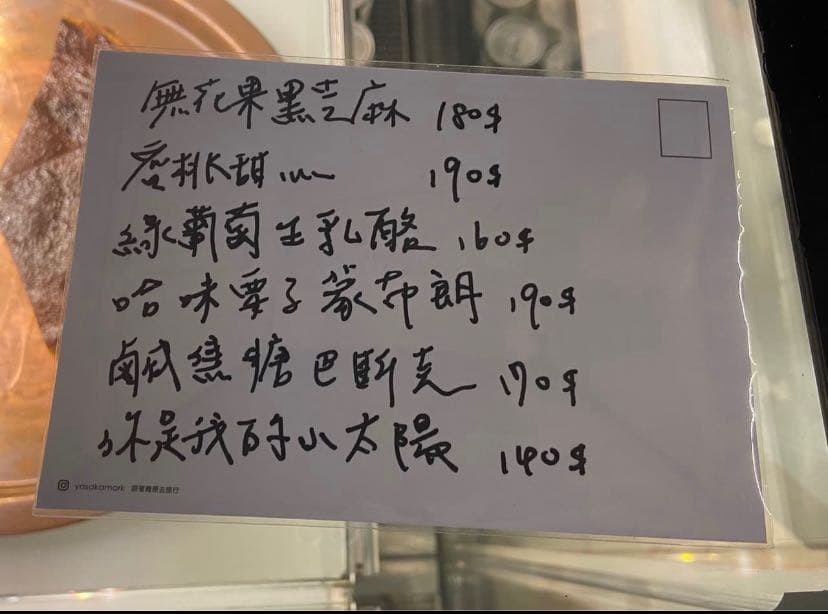 無花果黑芝麻 180$
蜜桃甜心 190$
綠葡萄生乳酪 160$
咕味栗子蒙布朗 190$
鹹焦糖巴斯克 170$
你是我的小太陽 140$
yasakamori